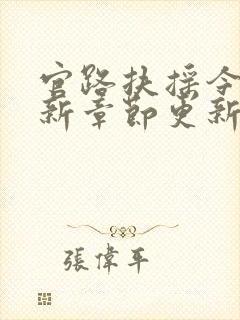 官路扶摇令
新章节更新
張偉平